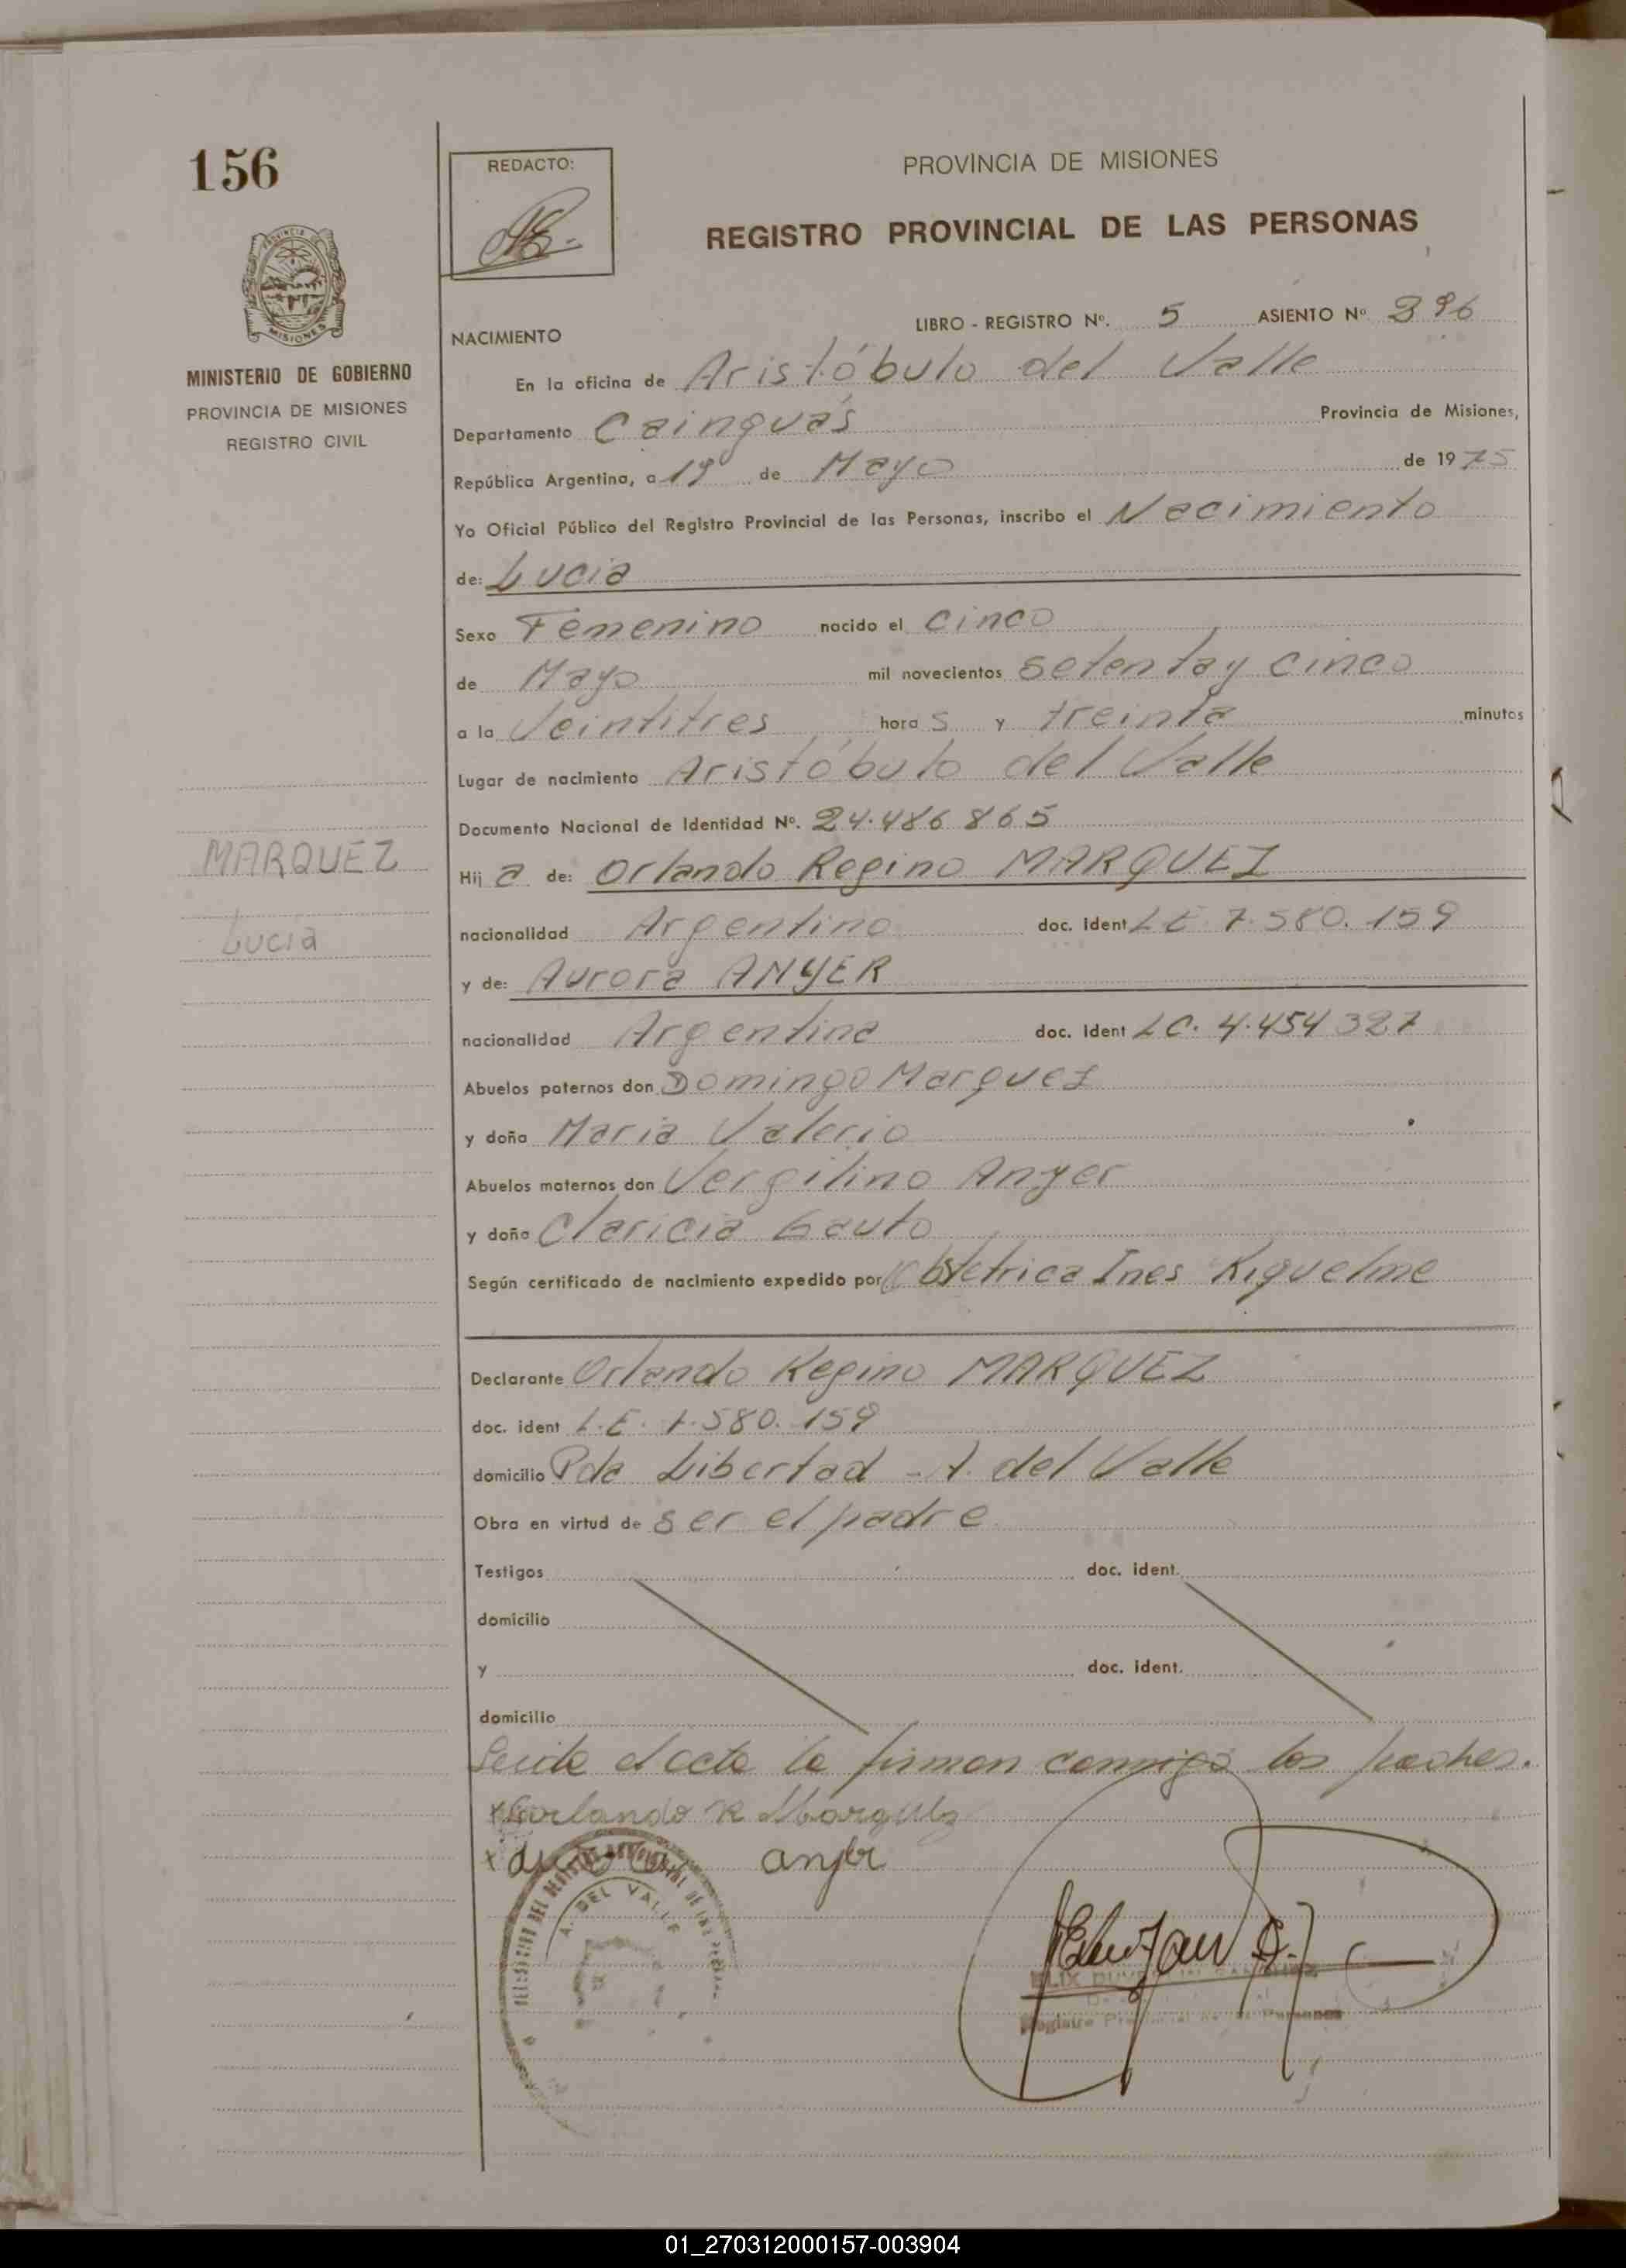 156
REDACTO:
PROVINCIA DE MISIONES
REGISTRO PROVINCIAL DE LAS PERSONAS
PROVINCIA DE
MISIONES
MINISTERIO DE GOBIERNO
PROVINCIA DE MISIONES
REGISTRO CIVIL
NACIMIENTO LIBRO - REGISTRO Nº. 5 ASIENTO Nº 396
En la oficina de Aristóbulo del Valle
Departamento Cainguás Provincia de Misiones,
República Argentina, a 19 de Mayo de 1975
Yo Oficial Público del Registro Provincial de las Personas, inscribo el Nacimiento
de: Lucia
Sexo Femenino nacido el cinco
de Mayo mil novecientos setenta y cinco
a la Veintitres horas y treinta minutos
Lugar de nacimiento Aristóbulo del Valle
Documento Nacional de Identidad Nº. 24.486 865
MARQUEZ
Hija de: Orlando Regino MARQUEZ
Lucia
nacionalidad Argentino doc. ident LE 7.580.159
y de: Aurora ANYER
nacionalidad Argentina doc. ident LC. 4.454 327
Abuelos paternos don Domingo Marquez
y doña Maria Valerio
Abuelos maternos don Vergilino Anyer
y doña Claricia Gauto
Según certificado de nacimiento expedido por Obstetrica Ines Riquelme
Declarante Orlando Regino MARQUEZ
doc. ident L.E. 7.580.159
domicilio Pda Libertad - A. del Valle
Obra en virtud de ser el padre
Testigos doc. ident.
domicilio
y doc. ident.
domicilio
Leida el acta la firman conmigo los padres.
x Orlando R Marquez
x anyer
A. DEL VALLE
Registro Provincial de las Personas
01_270312000157-003904